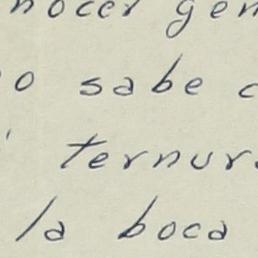 nocer gen
o sabe c
ternura
la boca